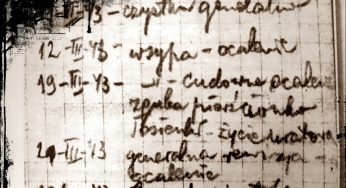 III-43 - czystka generalna
12-III-43 - wsypa - ocalenie
19-III-43 - cudowne ocalenie
zguba pierścionka
życie uratowa
III-43 generalna rewizja -
ocalenie